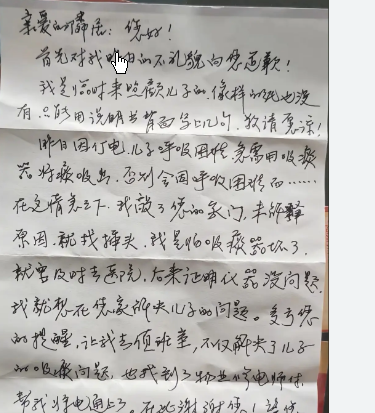 亲爱的邻居：您好！
首先对我昨日的不礼貌向您道歉！
我是临时来照顾儿子的，像样的纸也没
有，只能用说明书背面写上几句，敬请原谅！
昨日因停电，儿子呼吸困难，急需用吸痰
器将痰吸出，否则会因呼吸困难而……
在这情急之下，我敲了您的家门，未解释
原因，就找插头，我是怕吸痰器坏了，
就要及时去医院，后来证明仪器没问题，
我就想在您家解决儿子的问题。多亏您
的提醒，让我去值班室，不仅解决了儿子
的吸痰问题，也找到了物业停电师傅，
帮我将电通上了。在此谢谢您！